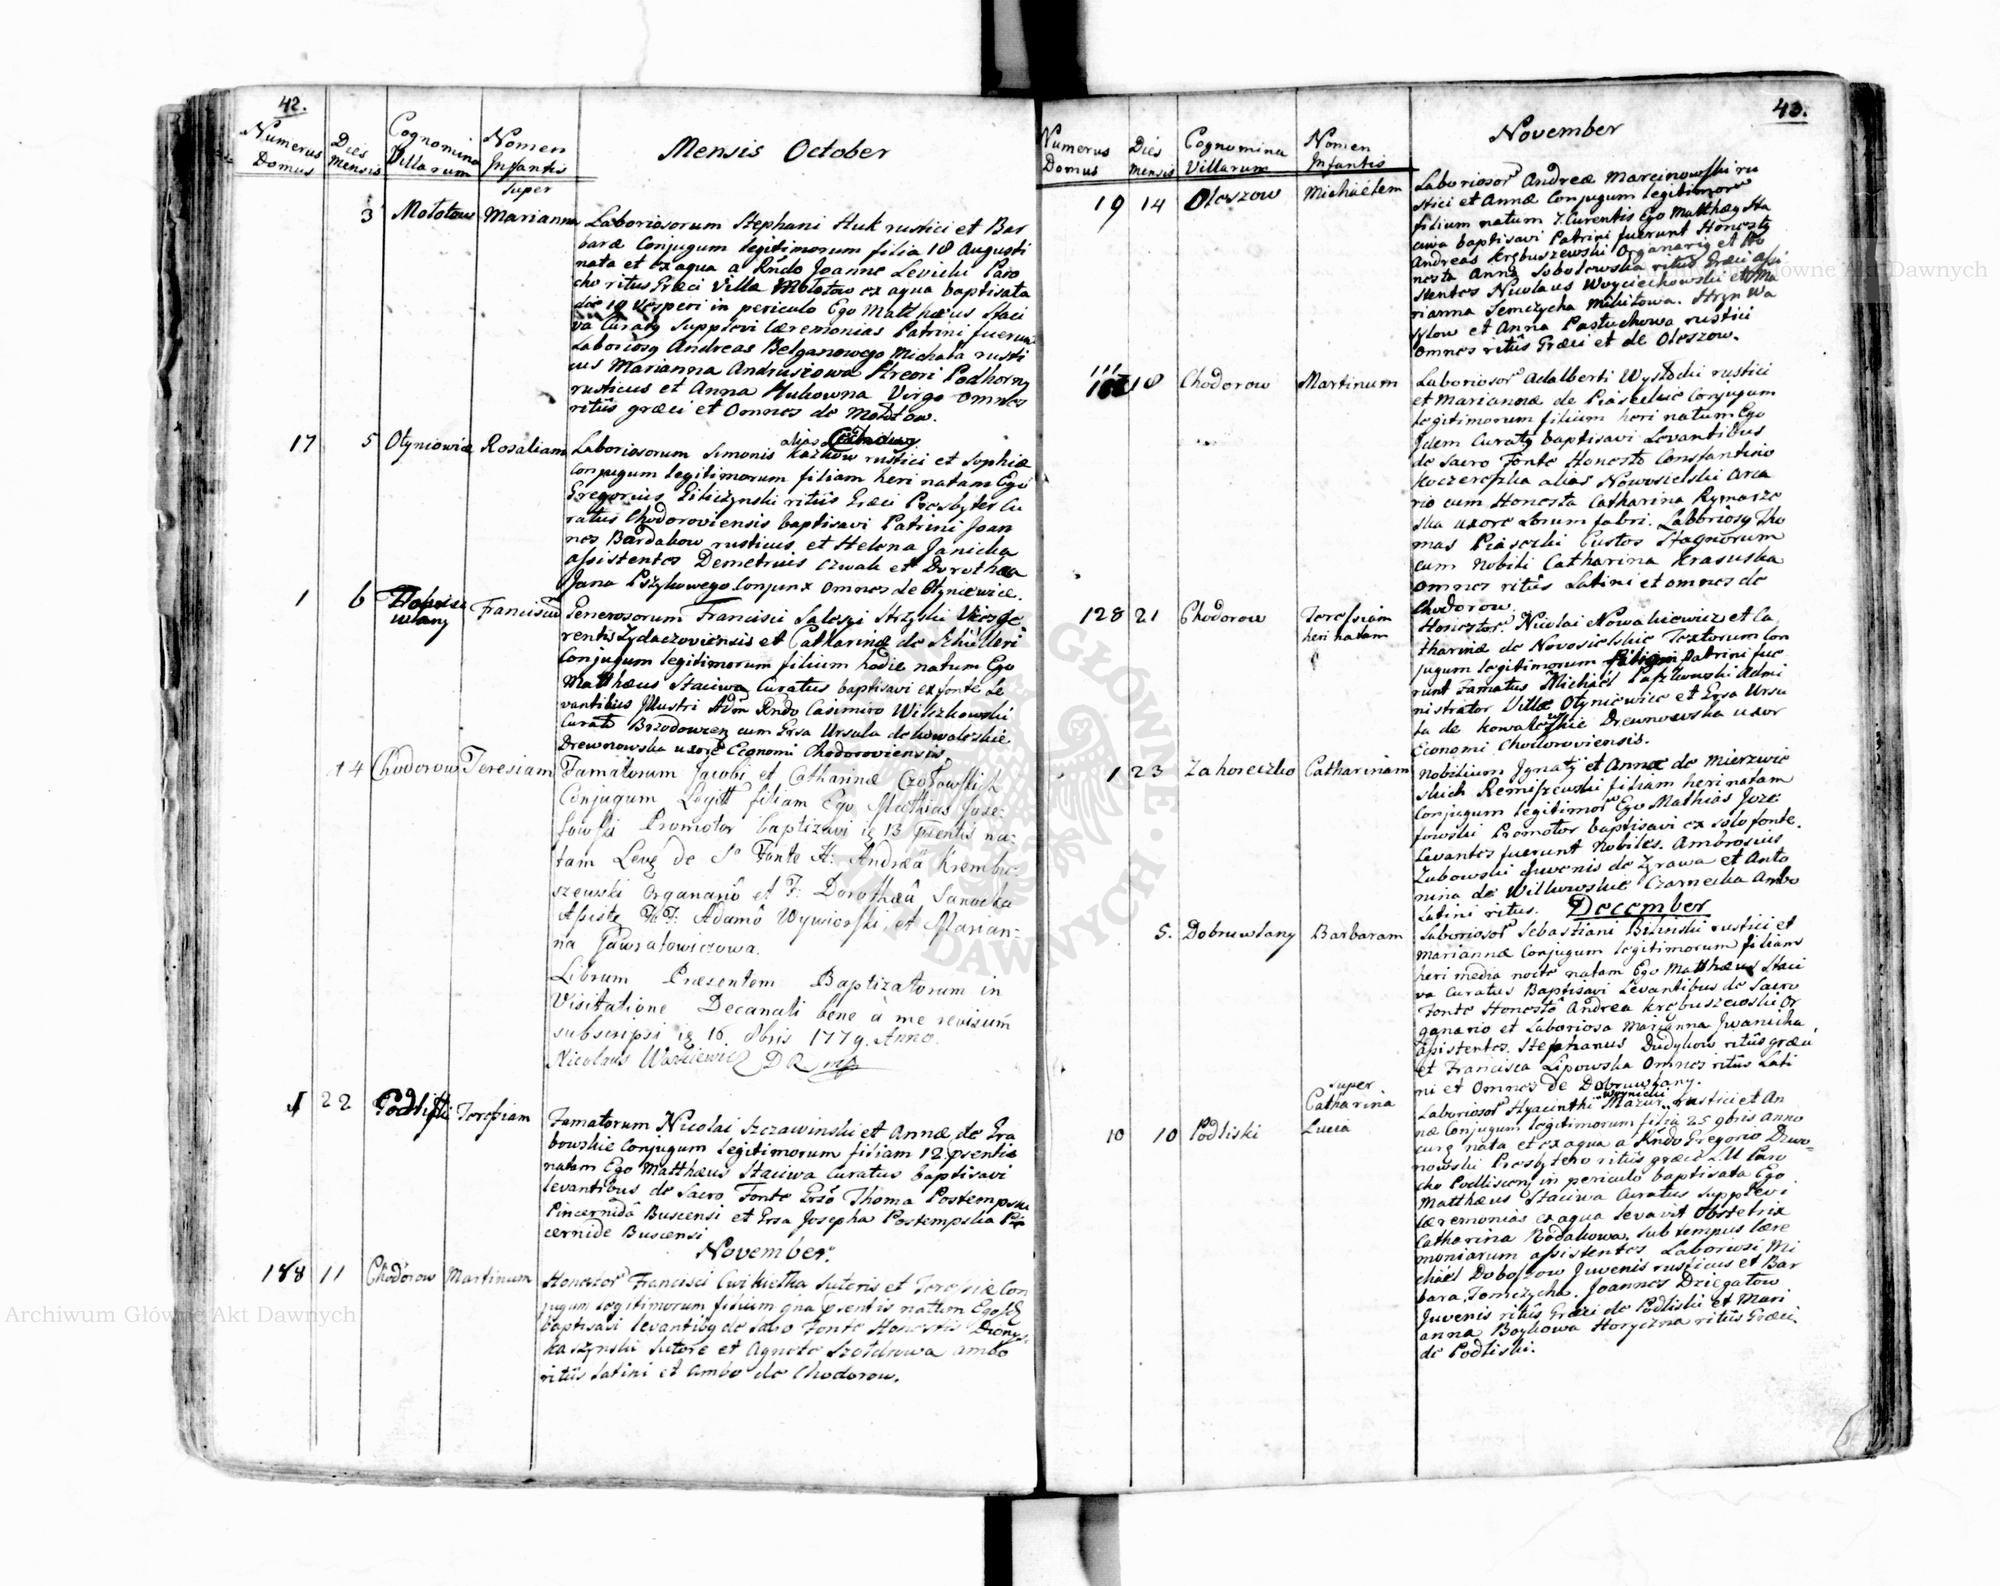 42.
Numerus Domus
Dies Mensis
Cognomina Villarum
Nomen Infantis
Mensis October
super
3 Mołotow Mariannа
Laboriosorum Stephani Huk rustici et Bar
baræ Conjugum legitimorum filia 18 Augusti
nata et ex aqua a Rndo Joanne Levicki Paro
cho ritus Græci Villæ Mołotow ex aqua baptisata
die 19 Vesperi in periculo Ego Matthæus Staci
va Curatq Supplevi Cæremonias Patrini fuerunt
Laboriosq Andreas Belganowego Michała rusti
cus Marianna Andruszowa Hreori Podhorny
rusticus et Anna Hukowna Virgo omnes
ritûs græci et Omnes de Mołotow.
17 5 Otyniowice Rosaliam
alias
Laboriosorum Simonis Kaznow rustici et Sophiæ
Conjugum legitimorum filiam heri natam Ego
Gregorius Giliczynski ritûs Græci Presbyter Cu
ratus Chodoroviensis baptisavi Patrini Joan
nes Bardakow rusticus et Helena Janicha
assistentes Demetrius Czwak et Dorothea
Jana Pszykowego Conjunx omnes de Otyniewice.
1 6 Franciscum
Generosorum Francisci Salesii Strzyski Vicesge
rentis Zydaczoviensis et Catharinæ de Schilleri
Conjugum legitimorum filium hodie natum Ego
Matthæus Staciwa Curatus baptisavi ex fonte Le
vantibus Illustri Adm Rndo Casimiro Wilczkowski
Curato Brzodowcen cum Grsa Ursula de Kowalezskie
Drewnowska uxore Economi Chodoroviensis
14 Chodorow Teresiam
Famatorum Jacobi et Catharinæ Czołowskich
Conjugum Legitt filiam Ego Mathias Juze-
fowski Promotor baptizavi ig 13 psentis na-
tam Levq de So Fonte H: Andræa Krembu-
szewski Organario et F: Dorothæâ Sanocka
Assiste H.F: Adamô Wywiorski, et Marian-
na Gawratowiczowa.
Librum Præsentem Baptizatorum in
Visitatione Decanali bene à me revisum
subscripsi ig 16. 8bris 1779. Anno.
Nicolaus D R mp
1 22 Podliski Teressiam
Famatorum Nicolai Szczawinski et Annæ de Gra
bowskie Conjugum legitimorum filiam 12 psentis
natam Ego Matthæus Staciwa Curatus baptisavi
levantibus de Sacro Fonte Grso Thoma Postempski
Pincernida Buscensi et Grsa Josepha Postempska Pin
cernide Buscensi
November.
188 11 Chodorow Martinum
Honestor Francisci Cwikietka Sutoris et Teressiæ Con
jugum legitimorum filium 9na psentis natum Ego Id
baptisavi levantibq de Sacro Fonte Honestis Dionys
kaszynski Sutore et Agnete Szołdrowa ambo
ritûs Latini et ambo de Chodorow.
43.
Numerus Domus
Dies mensis
Cognomina Villarum
Nomen Infantis
November
19 14 Oleszow Michaelem
Laboriosor Andreæ Marcinowski ru
stici et Annæ Conjugum legitimor
filium natum 7 Curentis Ego Matthæq Sta
ciwa baptisavi Patrini fuerunt Honestq
Andreas Krębuszewski Organariq et Ho
nesta Anna Sobolewska ritûs Græci assi
stentes Nicolaus Woyciechowski et Ma
rianna Semczycha Mikitowa. Hryn Wa
sylow et Anna Pastuchowa rustici
Omnes ritûs Græci et de Oleszow.
111 18 Chodorow Martinum
Laborios Adalberti Wystocki rustici
et Mariannæ de Piaseckie Conjugum
legitimorum filium heri natum Ego
Idem Curatq baptisavi Levantibus
de Sacro Fonte Honesto Constantino
Koczerepka alias Nowosielski Arca
rio cum Honesta Catharina Rymarze
ska uxore Lorum fabri. Laboriosq Tho
mas Piasecki Custos Stagnorum
cum Nobili Catharina Krasuska
omnes ritûs Latini et omnes de
Chodorow.
128 21 Chodorow Teressiam heri natam
Honestor Nicolai Nowakiewicz et Ca
tharinæ de Nowosielskie Textorum Con
jugum legitimorum filiam Patrini fue
runt Famatus Michael Paszkowski Admi
nistrator Villæ Otyniewice et Grsa Ursu
la de Kowalezskie Drewnowska uxor
Economi Chodoroviensis.
1 23 Zahoreczko Catharinam
Nobilium Ignatij et Annæ de Mierzwic
skich Remiszewski filiam heri natam
Conjugum legitimor Ego Mathias Joze
fowski Promotor baptisavi ex solo fonte.
Levantes fuerunt Nobiles. Ambrosius
Zubowski Juvenis de Zyrawa et Anto
nina de Wilkowskie Czarnecka Ambo
Latini ritus. December
5. Dobrowlany Barbaram
Laboriosor Sebastiani Bilinski rustici et
Mariannæ Conjugum legitimorum filiam
heri media nocte natam Ego Matthæus Staci
va Curatus Baptisavi Levantibus de Sacro
Fonte Honesto Andrea Krębuszewski Or
ganario et Laboriosa Marianna Iwanicha,
assistentes. Stephanus Dudykow ritûs græci
et Francisca Lipowska Omnes ritûs Lati
ni et Omnes de Dobrowlany.
super
Catharina
10 10 Podliski Lucia
Laboriosor Hyacinthi Mazur rustici et An
næ Conjugum legitimorum filia 25 9bris Anno
curq nata et ex aqua a Rndo Gregorio Dwo-
nowski Presbytero ritûs græci LM Paro
cho Podliscen in periculo baptisata Ego
Matthæus Staciwa Curatus supplevi
Cæremonias ex aqua levavit Obstetrix
Catharina Rodakowa, sub tempus Cære
moniarum assistentes Laboriosi Mi
chael Doboszow Juvenis rusticus et Bar
bara Tomczycha. Joannes Dziegatow
Juvenis ritûs Græci de Podliski et Mari
anna Boykowa Horyczna ritûs Græci
de Podliski.
Archiwum Główne Akt Dawnych
Archiwum Główne Akt Dawnych
ARCHIWUM GŁÓWNE AKT DAWNYCH